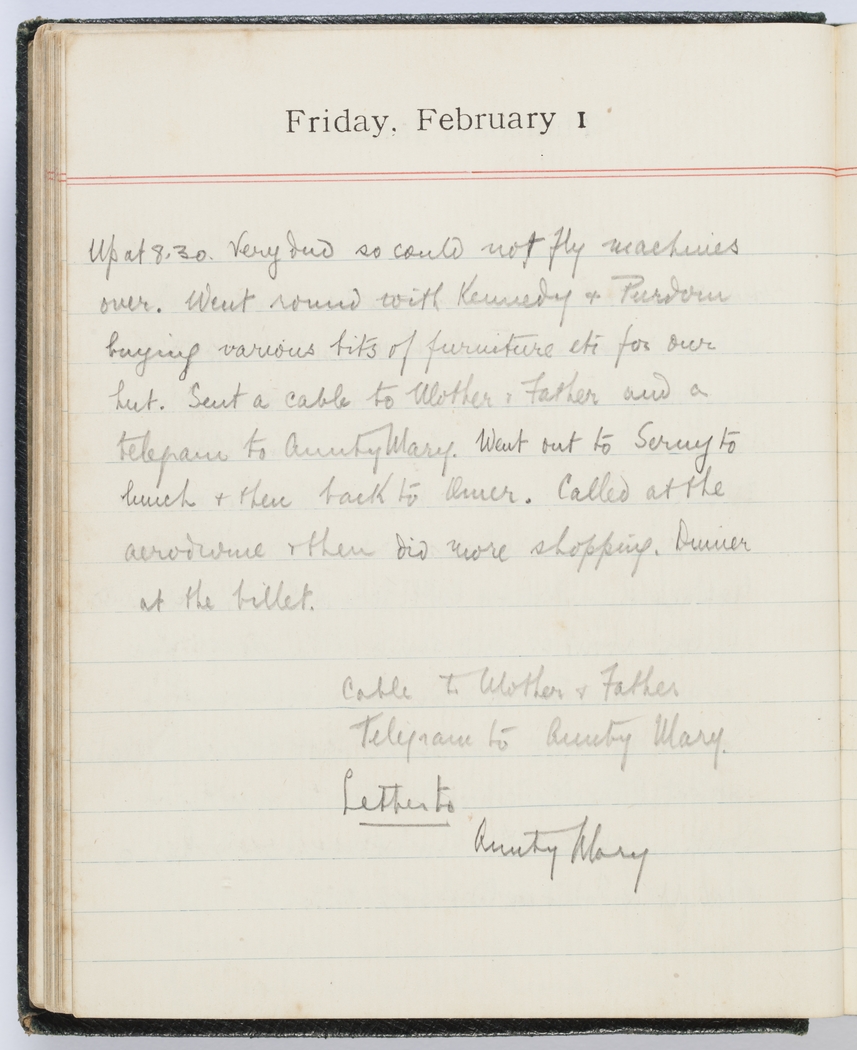 Friday, February 1
Up at 8.30. Very dud so could not fly machines
over. Went round with Kennedy + Purdom
buying various bits of furniture etc for our
hut. Sent a cable to Mother + Father and a
telegram to Aunty Mary. Went out to Serny to
lunch + then back to Omer. Called at the
aerodrome + then did more shopping. Dinner
at the billet.
Cable to Mother + Father
Telegram to Aunty Mary.
Letter to
Aunty Mary